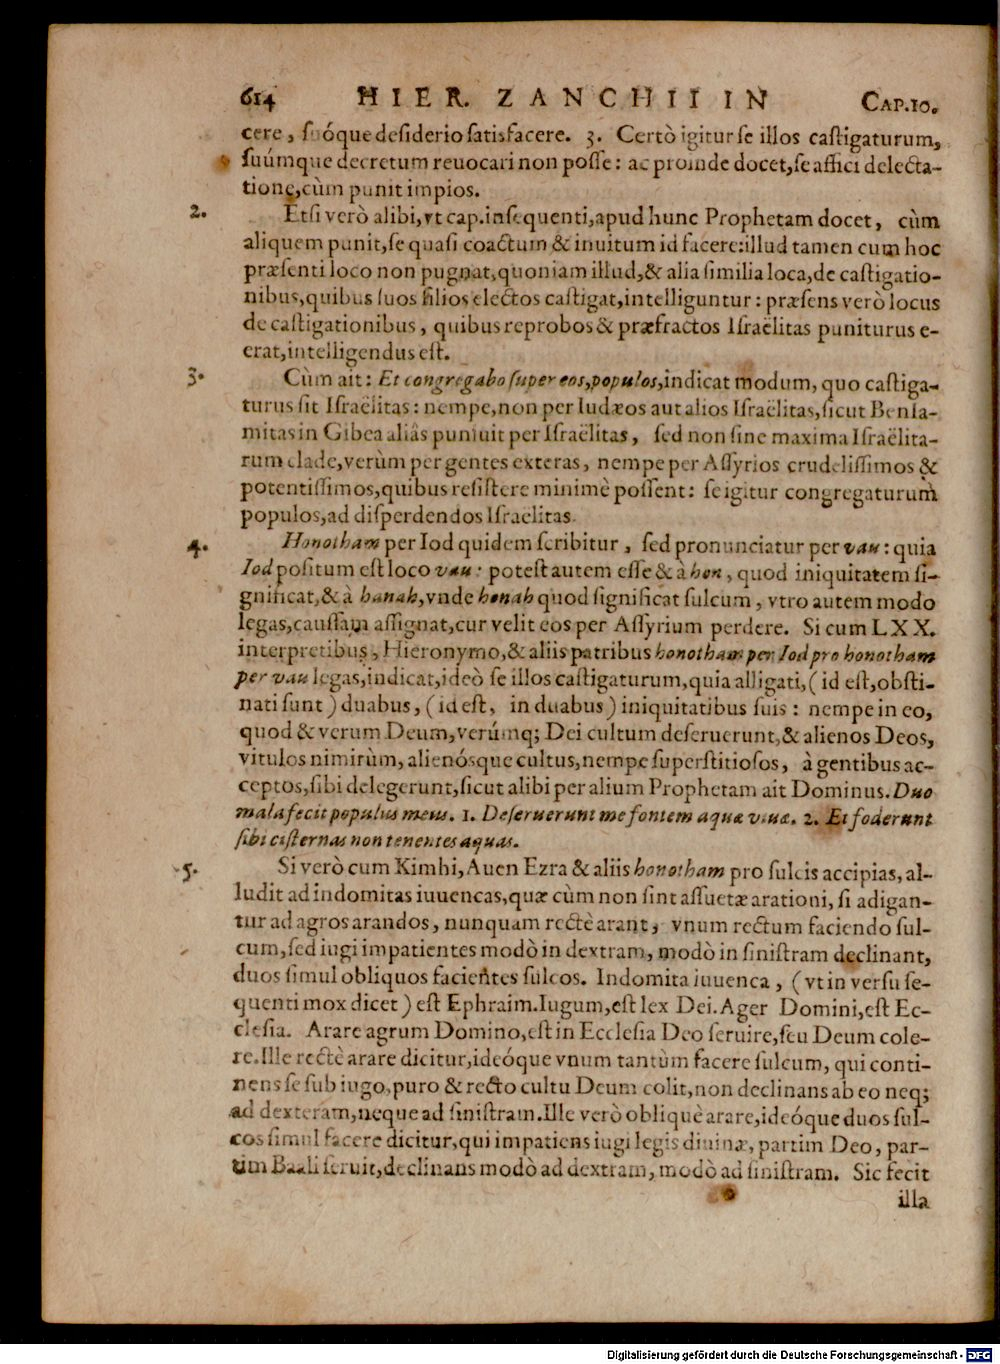 614 HIER. ZANCHII IN CAP.10.
cere, suóque desiderio satisfacere. 3. Certò igitur se illos castigaturum,
suúmque decretum reuocari non posse: ac proinde docet, se affici delecta-
tione, cùm punit impios.
2. Etsi verò alibi, vt cap. insequenti, apud hunc Prophetam docet, cùm
aliquem punit, se quasi coactum & inuitum id facere: illud tamen cum hoc
præsenti loco non pugnat, quoniam illud, & alia similia loca, de castigatio-
nibus, quibus suos filios electos castigat, intelliguntur: præsens verò locus
de castigationibus, quibus reprobos & præfractos Israëlitas puniturus e-
erat, intelligendus est.
3. Cùm ait: Et congregabo super eos, populos, indicat modum, quo castiga-
turus sit Israëlitas: nempe, non per Iudæos aut alios Israëlitas, sicut Benia-
mitas in Gibea aliàs puniuit per Israëlitas, sed non sine maxima Israëlita-
rum clade, verùm per gentes exteras, nempe per Assyrios crudelissimos &
potentissimos, quibus resistere minimè possent: se igitur congregaturum
populos, ad disperdendos Israelitas.
4. Honotham per Iod quidem scribitur, sed pronunciatur per vau: quia
Iod positum est loco vau: potest autem esse & à hon, quod iniquitatem si-
gnificat, & à hanah, vnde honah quod significat sulcum, vtro autem modo
legas, caussam assignat, cur velit eos per Assyrium perdere. Si cum LXX.
interpretibus, Hieronymo, & aliis patribus honotham per Iod pro honotham
per vau legas, indicat, ideò se illos castigaturum, quia alligati, (id est, obsti-
nati sunt) duabus, (id est, in duabus) iniquitatibus suis: nempe in eo,
quod & verum Deum, verúmq; Dei cultum deseruerunt, & alienos Deos,
vitulos nimirùm, alienósque cultus, nempe superstitiosos, à gentibus ac-
ceptos, sibi delegerunt, sicut alibi per alium Prophetam ait Dominus. Duo
mala fecit populus meus. 1. Deseruerunt me fontem aquæ viuæ. 2. Et foderunt
sibi cisternas non tenentes aquas.
5. Si verò cum Kimhi, Auen Ezra & aliis honotham pro sulcis accipias, al-
ludit ad indomitas iuuencas, quæ cùm non sint assuetæ arationi, si adigan-
tur ad agros arandos, nunquam rectè arant, vnum rectum faciendo sul-
cum, sed iugi impatientes modò in dextram, modò in sinistram declinant,
duos simul obliquos facientes sulcos. Indomita iuuenca, (vt in versu se-
quenti mox dicet) est Ephraim. Iugum, est lex Dei. Ager Domini, est Ec-
clesia. Arare agrum Domino, est in Ecclesia Deo seruire, seu Deum cole-
re. Ille rectè arare dicitur, ideóque vnum tantùm facere sulcum, qui conti-
nens se sub iugo, puro & recto cultu Deum colit, non declinans ab eo neq;
ad dexteram, neque ad sinistram. Ille verò obliquè arare, ideóque duos sul-
cos simul facere dicitur, qui impatiens iugi legis diuinæ, partim Deo, par-
tim Baali seruit, declinans modò ad dextram, modò ad sinistram. Sic fecit
illa
Digitalisierung gefördert durch die Deutsche Forschungsgemeinschaft - DFG